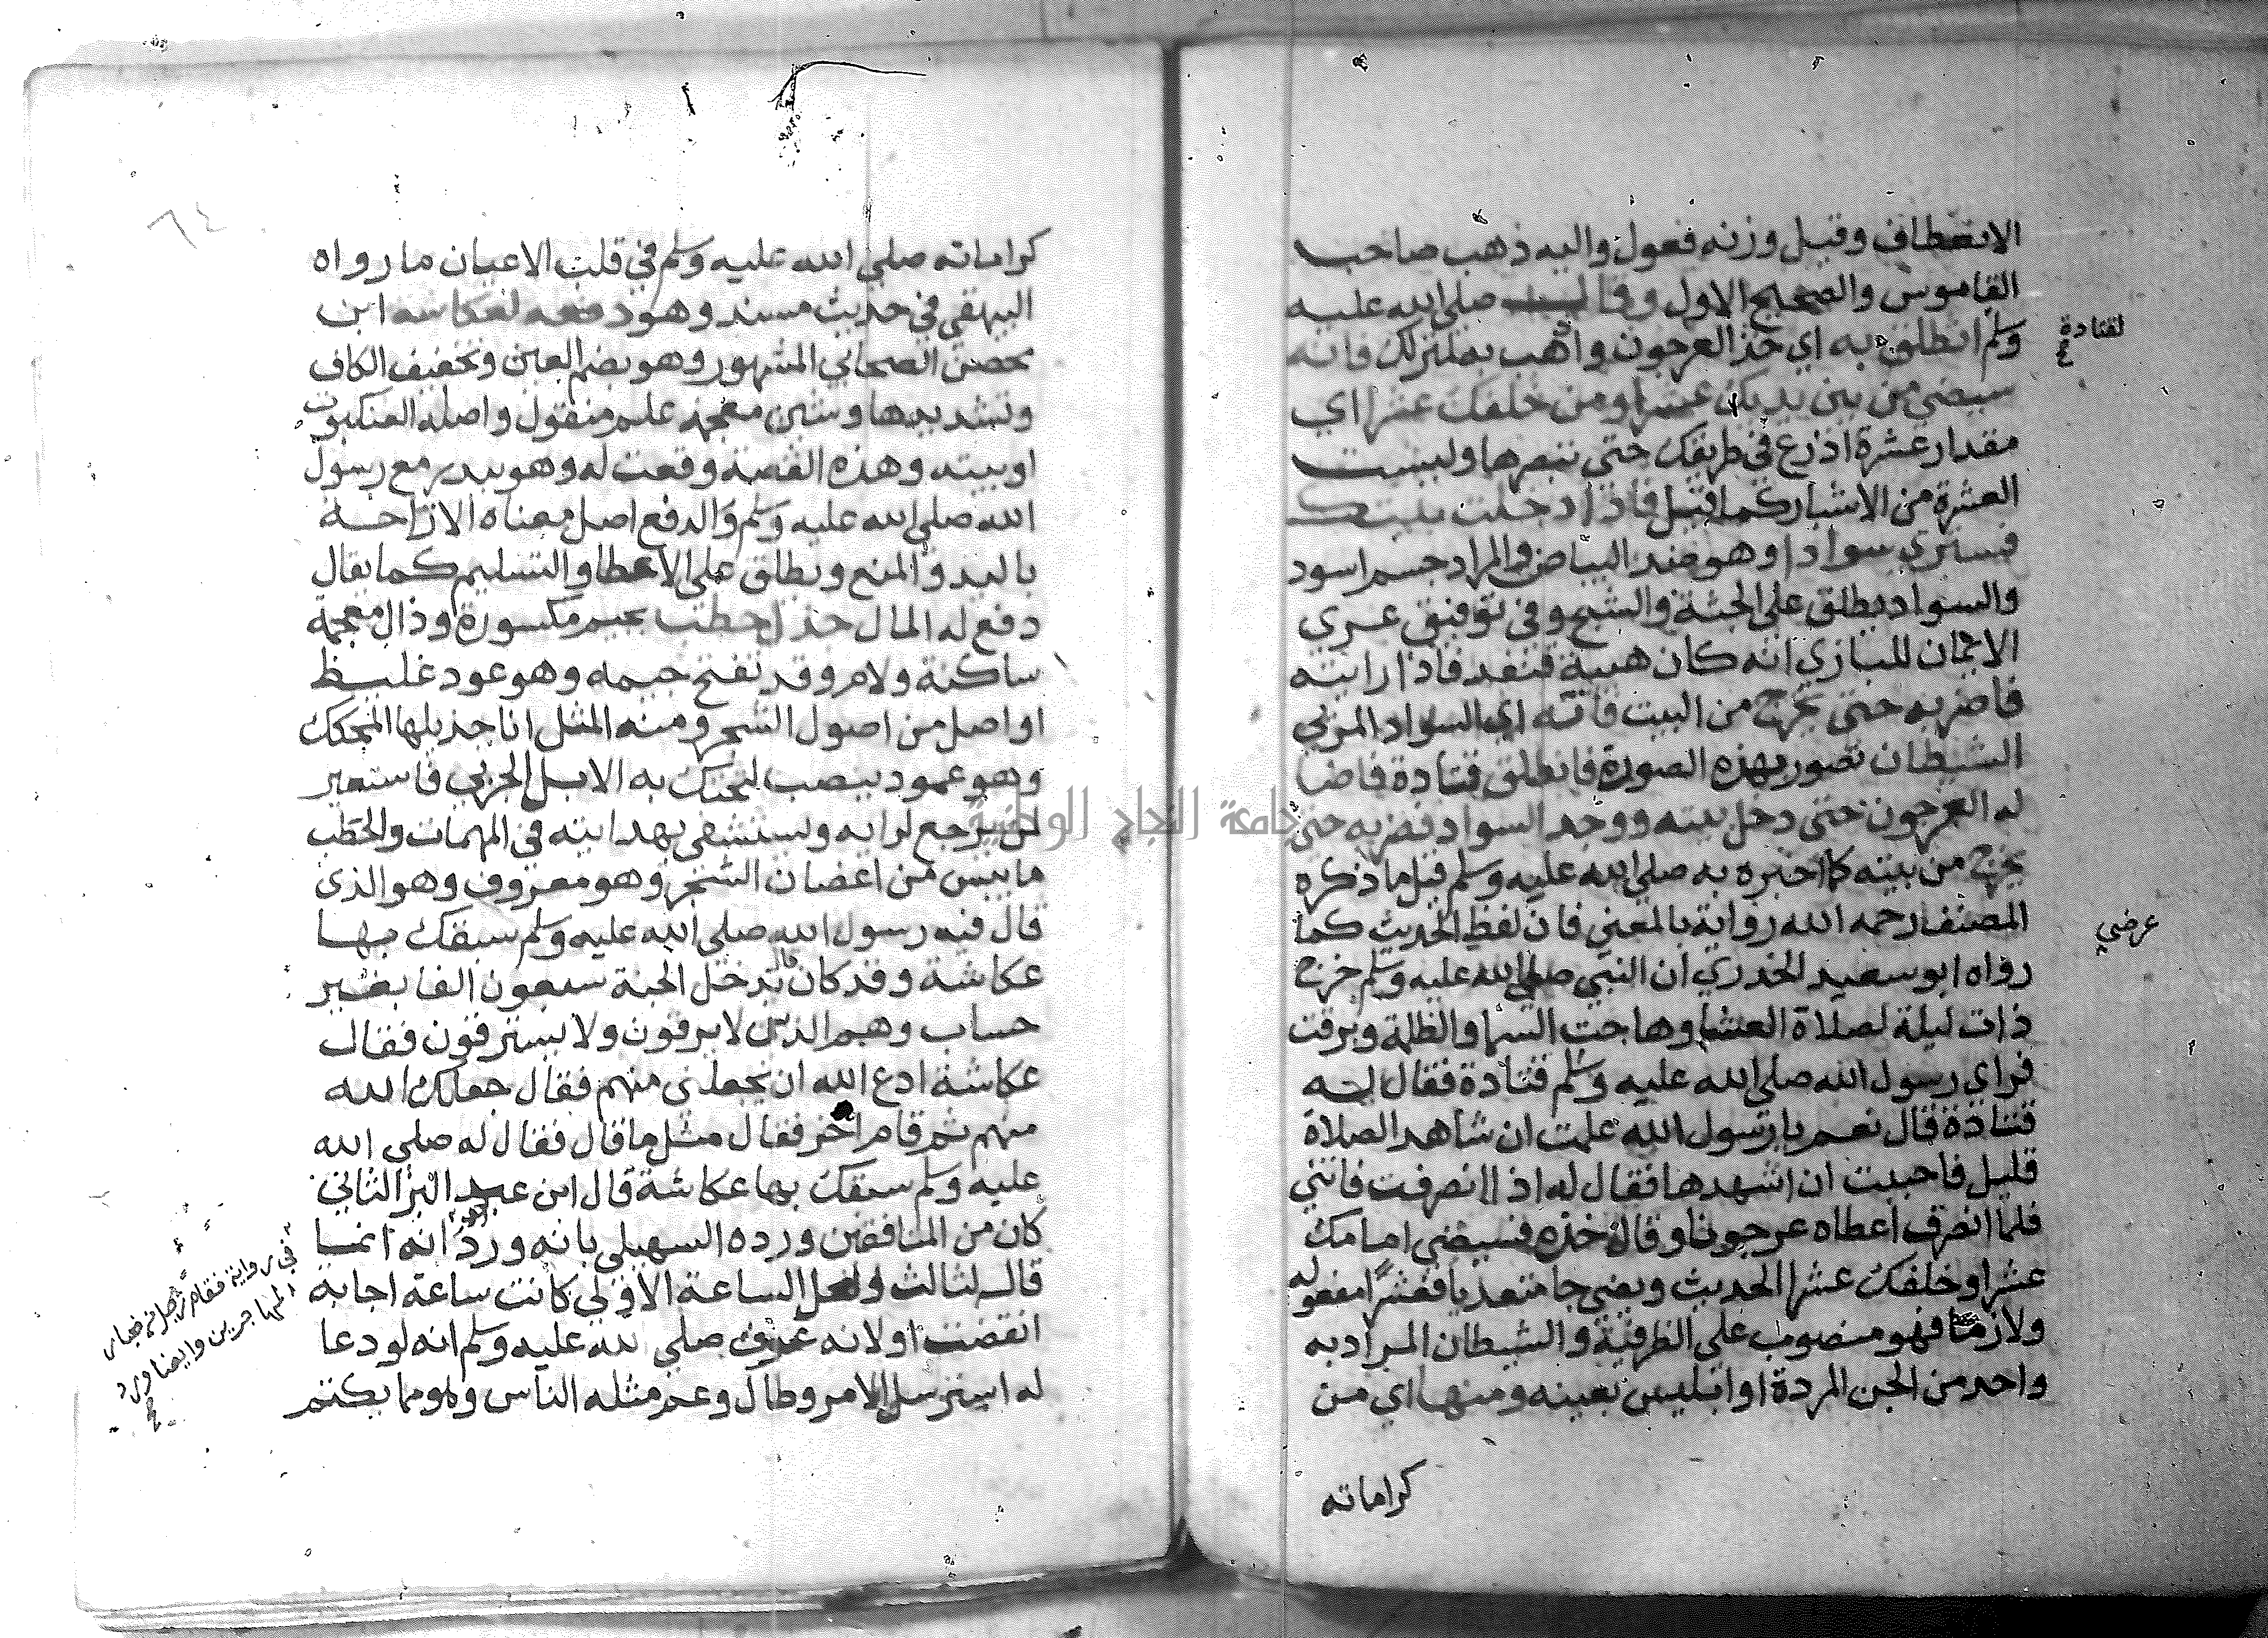 الانعطاف وقيل وزنه فعول واليه ذهب صاحب
القاموس والصحيح الاول وقال صلى الله عليه
وسلم انطلق به اي خذ العرجون واذهب به لمنزلك فانه
لقتادة
سيضي من بين يديك عشرا ومن خلفك عشرا اي
مقدار عشرة اذرع في طريقك حتى تبصرها وليست
العشرة من الاشبار كما قيل فاذا دخلت بيتك
فسترى سوادا وهو ضد البياض والمراد جسم اسود
والسواد يطلق على الجثة والشبح وفي توفيق عرى
الايمان للبازري انه كان هيية قنفد فاذا رايته
فاضربه حتى يخرج من البيت فانه اي السواد المرئي
الشيطان تصور بهذه الصورة فانطلق قتادة فاضا
له العرجون حتى دخل بيته ووجد السواد فضربه حتى
يخرج من بيته كما اخبره به صلى الله عليه وسلم قيل ما ذكره
المصنف رحمه الله رواية بالمعنى فان لفظ الحديث كما
عرضي
رواه ابو سعيد الخدري ان النبي صلى الله عليه وسلم خرج
ذات ليلة لصلاة العشا وهاجت السما والظلمة وبرقت
فراى رسول الله صلى الله عليه وسلم قتادة فقال له
قتادة قال نعم يا رسول الله علمت ان شاهد الصلاة
قليل فاحببت ان اشهدها فقال له اذا انصرفت فائتني
فلما انصرف اعطاه عرجونا وقال خذه فسيضي امامك
عشرا وخلفك عشرا الحديث ويضي جا متعديا فعشرا مفعوله
ولازما فهو منصوب على الظرفية والشيطان المراد به
واحد من الجن المردة او ابليس بعينه ومنها اي من
كراماته
٦٤
كراماته صلى الله عليه وسلم في قلب الاعيان ما رواه
البيهقي في حديث مسند وهو دفعه لعكاشه ابن
محصن الصحابي المشهور وهو بضم العين وتخفيف الكاف
وتشديدها وشين معجمة علم منقول واصله العنكبوت
او بيته وهذه القصة وقعت له وهو ببدر مع رسول
الله صلى الله عليه وسلم والدفع اصل معناه الازاحة
باليد والمنع ويطلق على الاعطا والتسليم كما يقال
دفع له المال جذل حطب بجيم مكسورة وذال معجمه
ساكنة ولام وقد تفتح جيمه وهو عود غليظ
او اصل من اصول الشجر ومنه المثل انا جذيلها المحكك
وهو عمود ينصب لتحتك به الابل الجربي فاستعير
لمن يرجع لرايه ويستشفى بهدايته في المهمات والحطب
ما يبس من اغصان الشجر وهو معروف وهو الذي
قال فيه رسول الله صلى الله عليه وسلم سبقك بها
عكاشة وقد كان قال تدخل الجنة سبعون الفا بغير
حساب وهم الذين لا يرقون ولا يسترقون فقال
عكاشة ادع الله ان يجعلني منهم فقال جعلك الله
منهم ثم قام اخر فقال مثل ما قال فقال له صلى الله
عليه وسلم سبقك بها عكاشة قال ابن عبد البر الثاني
كان من المنافقين ورده السهيلي بانه ورد انه انما
قال لثالث ولعل الساعة الاولى كانت ساعة اجابه
انقضت او لانه عرف صلى الله عليه وسلم انه لو دعا
له استرسل الامر وطال وعم مثله الناس وهو مما يكتم
في رواية فقام رجل من خيار
المهاجرين وايضا ورد
جامعة النجاح الوطنية